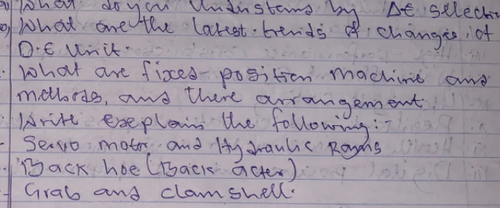 What do you Understand by D.E selecti
What are the latest trends of changes of
D.E Unit.
What are fixes position machine and
methods, and there arrangement
Write explain the following:
Servo motor and Hydraulic Rams
Back hoe (Back acter)
Grab and clamshell.